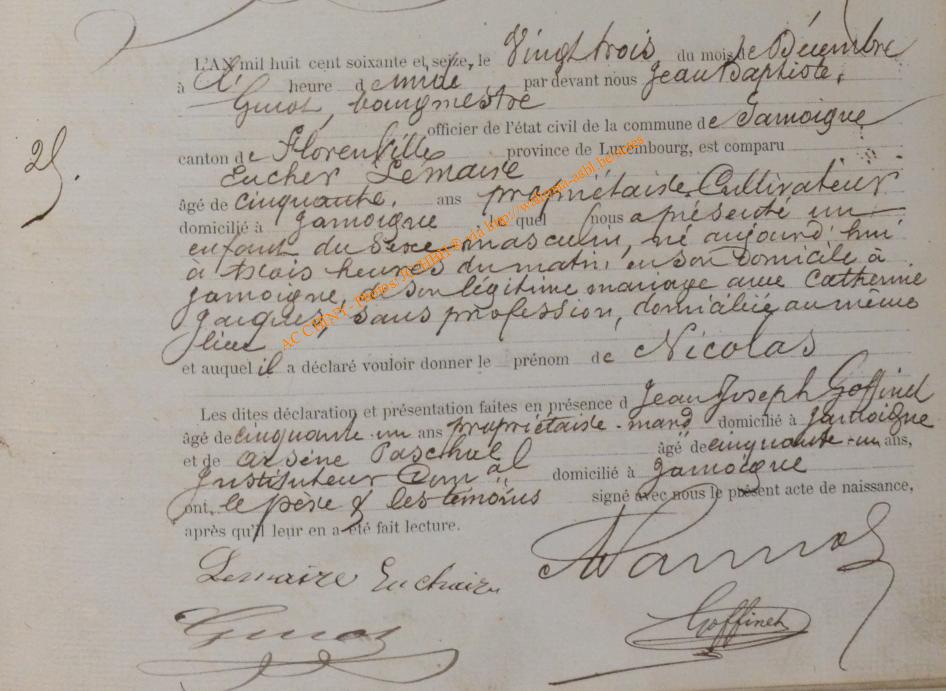 L'AN mil huit cent soixante et seize, le Vingt trois du mois de Décembre
à heure de par devant nous Jean Baptiste,
Guiot, bourgmestre
officier de l'état civil de la commune de Jamoigne
25.
canton de Florenville province de Luxembourg, est comparu
Eucher Lemaire
âgé de cinquante, ans propriétaire Cultivateur
domicilié à Jamoigne le quel nous a présenté un
enfant du Sexe masculin, né aujourd'hui
à trois heures du matin, en son domicile à
Jamoigne, de son légitime mariage avec Catherine
Jacques, sans profession, domiciliée au même
lieu
et auquel il a déclaré vouloir donner le prénom de Nicolas
Les dites déclaration et présentation faites en présence d Jean Joseph Goffinet
âgé de cinquante un ans propriétaire domicilié à Jamoigne
et de Arsène Paschal âgé de cinquante un ans,
Instituteur Comal domicilié à Jamoigne
ont, le père & les témoins signé avec nous le présent acte de naissance,
après qu'il leur en a été fait lecture.
Lemaire
Guiot Goffinet